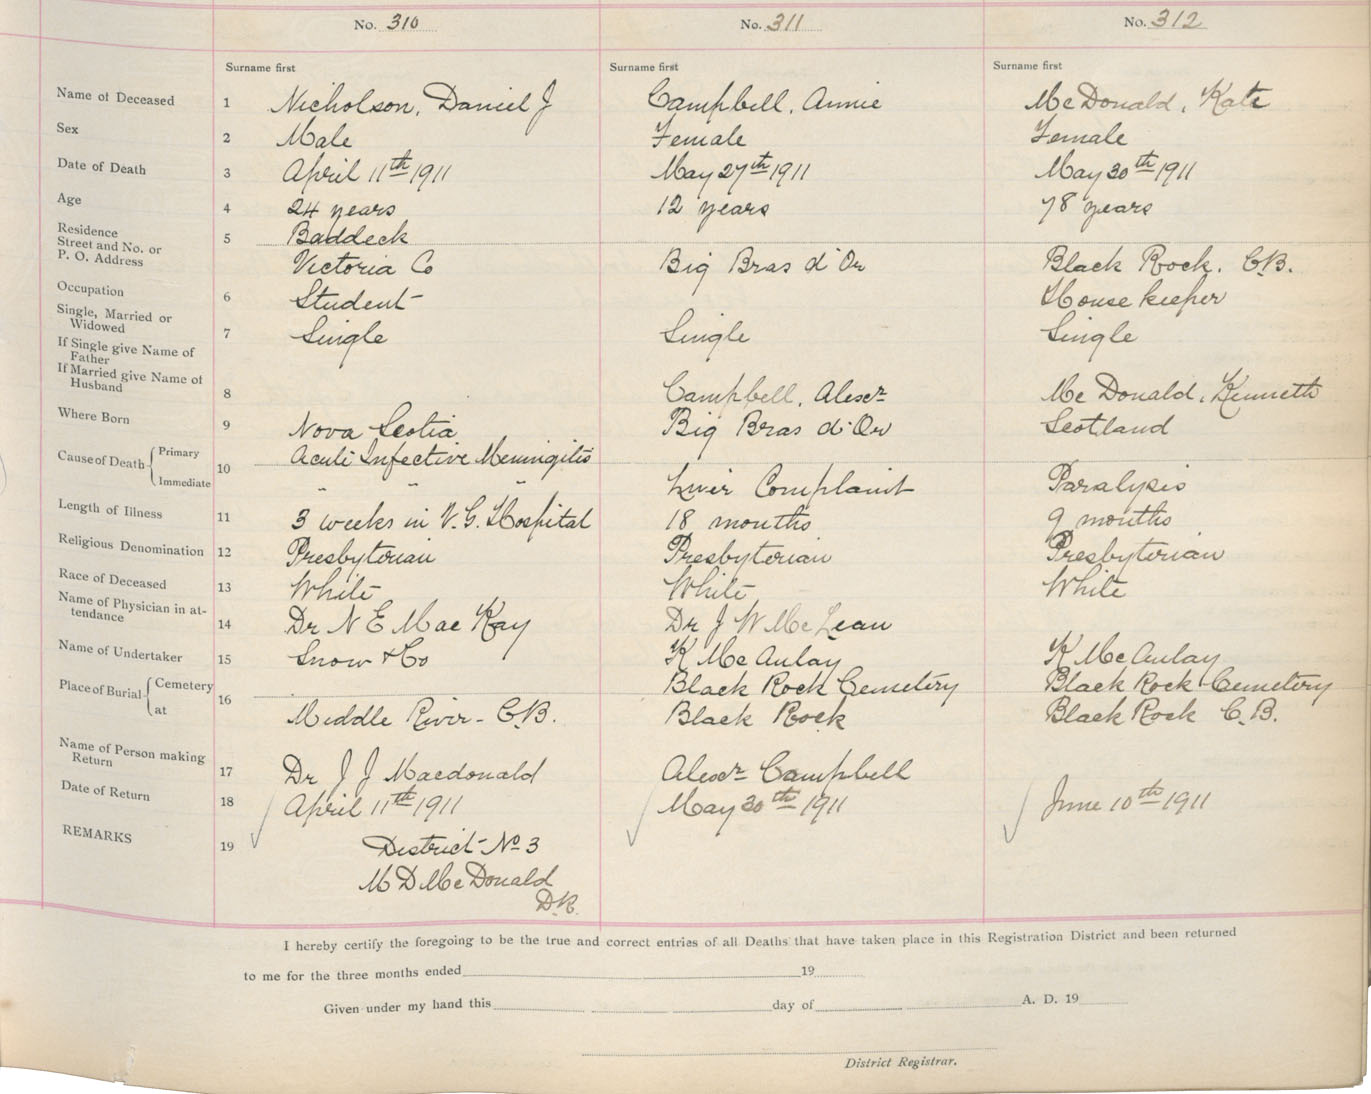 No. 310 No. 311 No. 312
Surname first Surname first Surname first
Name of Deceased 1 Nicholson, Daniel J Campbell, Annie McDonald, Kate
Sex 2 Male Female Female
Date of Death 3 April 11th 1911 May 27th 1911 May 30th 1911
Age 4 24 years 12 years 78 years
Residence 5 Baddeck
Street and No. or
P. O. Address Victoria Co Big Bras d'Or Black Rock. C.B.
Occupation 6 Student House keeper
Single, Married or
Widowed 7 Single Single Single
If Single give Name of
Father
If Married give Name of
Husband 8 Campbell, Alexr McDonald, Kenneth
Where Born 9 Nova Scotia Big Bras d'Or Scotland
Cause of Death Primary 10 Acute Infective Meningitis
Immediate " " " Liver Complaint Paralysis
Length of Illness 11 3 weeks in V.G. Hospital 18 months 9 months
Religious Denomination 12 Presbyterian Presbyterian Presbyterian
Race of Deceased 13 White White White
Name of Physician in at-
tendance 14 Dr N E MacKay Dr J W McLean
Name of Undertaker 15 Snow & Co K McAulay K McAulay
Place of Burial Cemetery 16 Black Rock Cemetery Black Rock Cemetery
at Middle River - C.B. Black Rock Black Rock C.B.
Name of Person making
Return 17 Dr J J Macdonald Alexr Campbell
Date of Return 18 April 11th 1911 May 30th 1911 June 10th 1911
REMARKS 19 District No 3
M D McDonald
D.R.
I hereby certify the foregoing to be the true and correct entries of all Deaths that have taken place in this Registration District and been returned
to me for the three months ended 19
Given under my hand this day of A. D. 19
District Registrar.